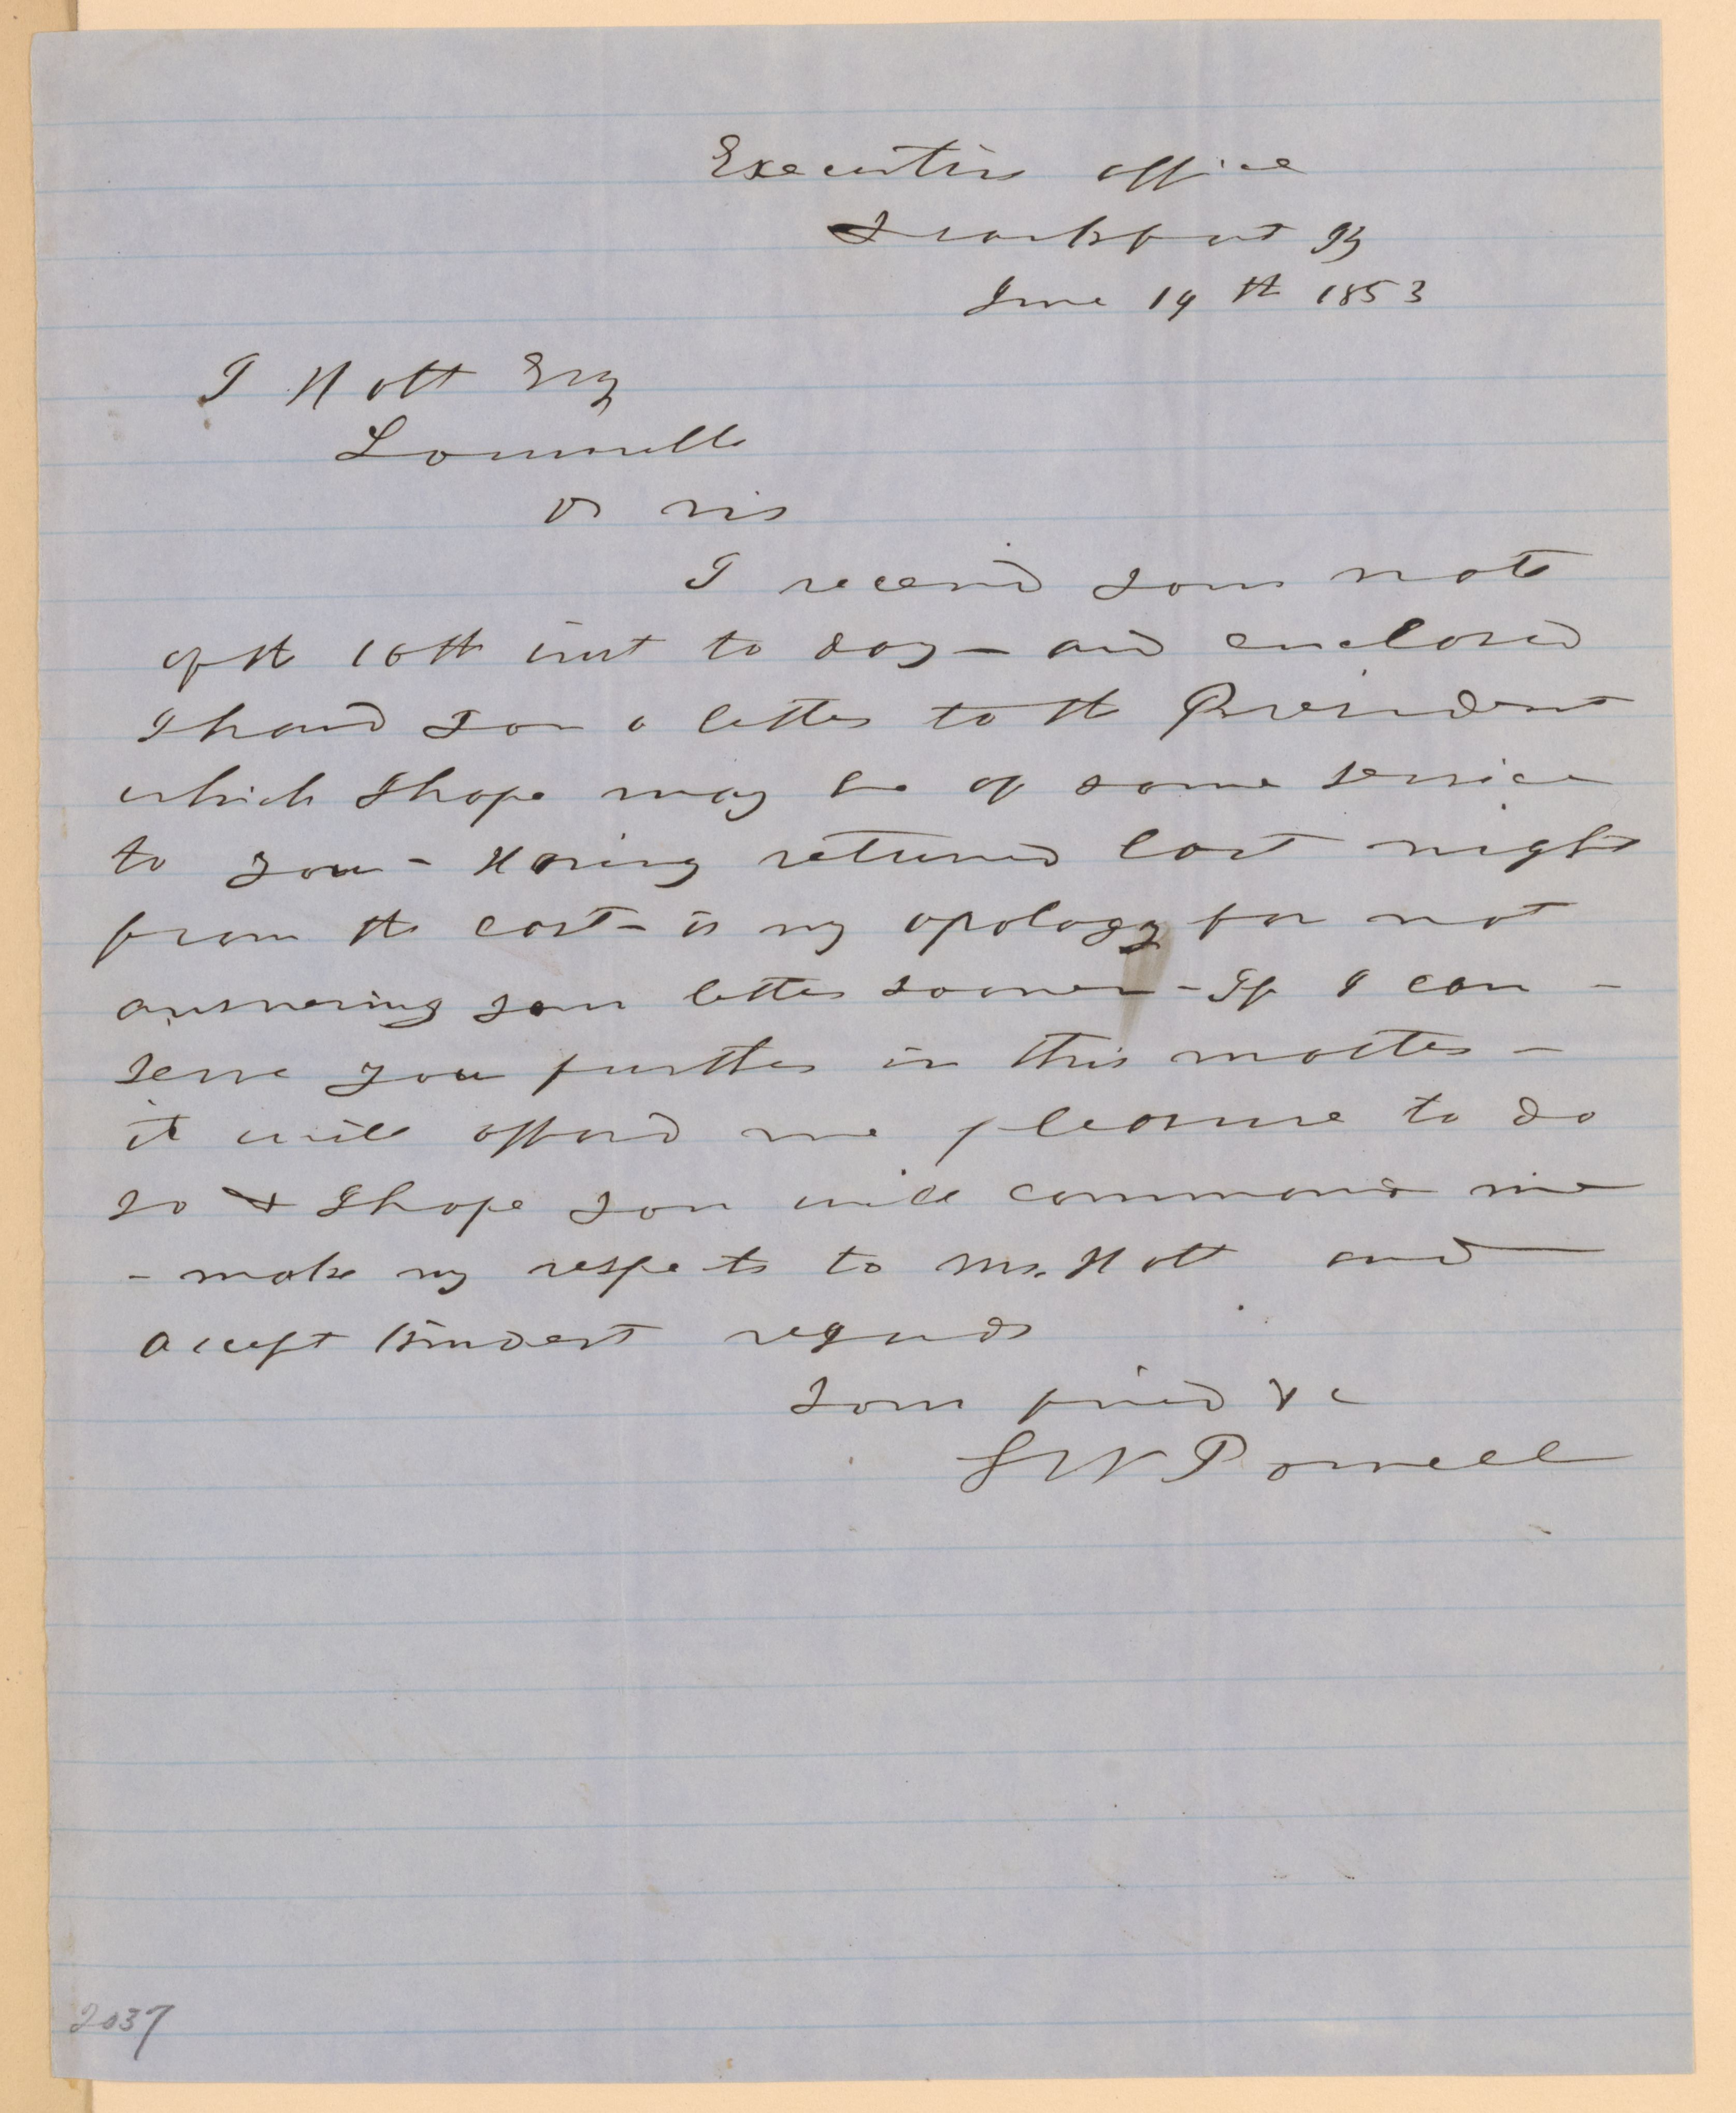 Executive office
Frankfort Ky
June 19th 1853
J Holt Esq
Louisville
Dr Sir
I received your note
of the 16th inst to day – and enclosed
I hand you a letter to the President
which I hope may be of some service
to you – Having returned last night
from the east – is my apology for not
answering your letter sooner – If I can –
serve you further in this matter –
it will afford me pleasure to do
so & I hope you will command me
– make my respects to Mrs. Holt and
accept kindest regards
Your friend &c
L W Powell
2037